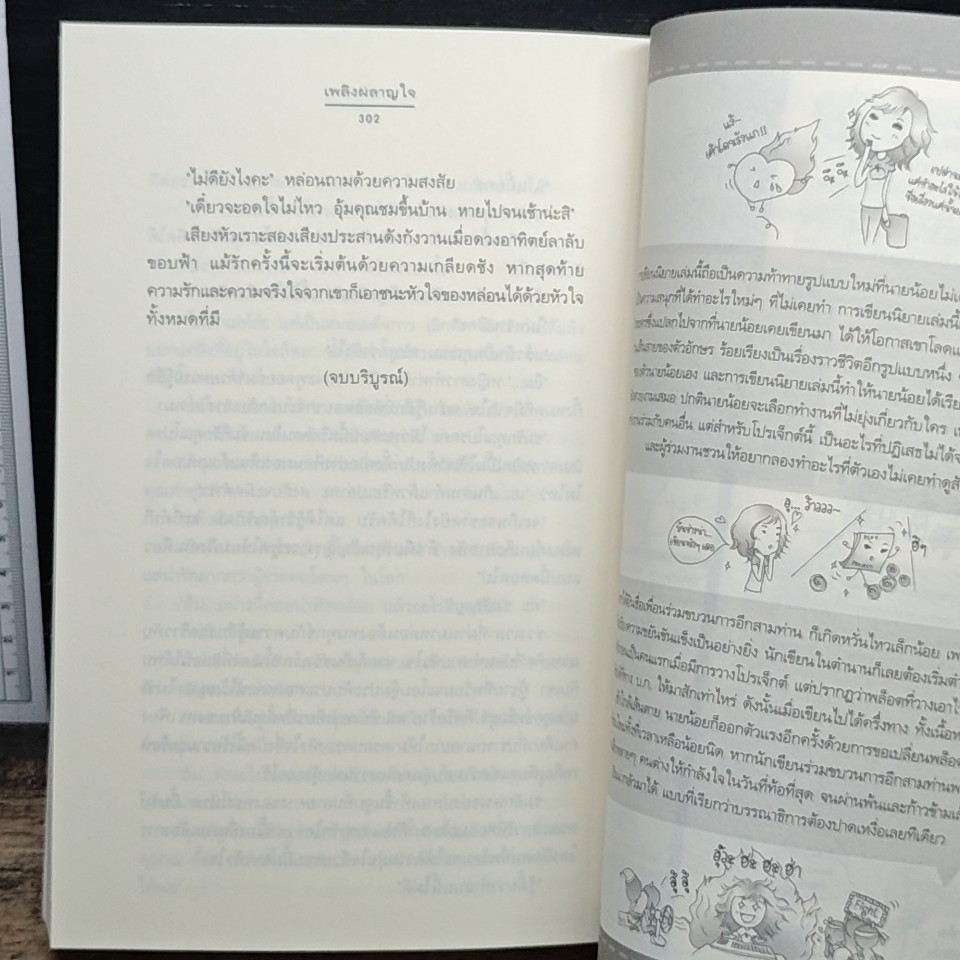 เพลิงผลาญใจ
302
"ไม่ดียังไงคะ" หล่อนถามด้วยความสงสัย
"เดี๋ยวจะอดใจไม่ไหว อุ้มคุณชมขึ้นบ้าน หายไปจนเช้าน่ะสิ"
เสียงหัวเราะสองเสียงประสานดังกังวานเมื่อดวงอาทิตย์ลาลับ
ขอบฟ้า แม้รักครั้งนี้จะเริ่มต้นด้วยความเกลียดชัง หากสุดท้าย
ความรักและความจริงใจจากเขาก็เอาชนะหัวใจของหล่อนได้ด้วยหัวใจ
ทั้งหมดที่มี
(จบบริบูรณ์)
นิยายเล่มนี้ถือเป็นความท้าทายรูปแบบใหม่ที่นายน้อยไม่
ความสนุกที่ได้ทำอะไรใหม่ๆ ที่ไม่เคยทำ การเขียนนิยายเล่มนี้
ซึ่งแปลกไปจากที่นายน้อยเคยเขียนมา ได้ให้โอกาสเขาโลดแ
ของตัวอักษร ร้อยเรียงเป็นเรื่องราวชีวิตอีกรูปแบบหนึ่ง
นายน้อยเอง และการเขียนนิยายเล่มนี้ทำให้นายน้อยได้เรีย
เสมอ ปกตินายน้อยจะเลือกทำงานที่ไม่ยุ่งเกี่ยวกับใคร
ร่วมกับคนอื่น แต่สำหรับโปรเจ็กต์นี้ เป็นอะไรที่ปฏิเสธไม่ได้จ
และผู้ร่วมงานชวนให้อยากลองทำอะไรที่ตัวเองไม่เคยทำดูสั
อู้... ว้าววว~
ฮิๆ
ชื่อเพื่อนร่วมขบวนการอีกสามท่าน ก็เกิดหวั่นไหวเล็กน้อย เพ
ความขยันขันแข็งเป็นอย่างยิ่ง นักเขียนในตำนานก็เลยต้องเริ่มต
เป็นคนแรกเมื่อมีการวางโปรเจ็กต์ แต่ปรากฏว่าพล็อตที่วางเอาไ
บ.ก. ให้มาสักเท่าไหร่ ดังนั้นเมื่อเขียนไปได้ครึ่งทาง ทั้งเนื้อห
นายน้อยก็ออกตัวแรงอีกครั้งด้วยการขอเปลี่ยนพล็อ
ทั้งที่เวลาเหลือน้อยนิด หากนักเขียนร่วมขบวนการอีกสามท่านพ
คนต่างให้กำลังใจในวันที่ท้อที่สุด จนผ่านพ้นและก้าวข้าม
มาได้ แบบที่เรียกว่าบรรณาธิการต้องปาดเหงื่อเลยทีเดียว
Fight